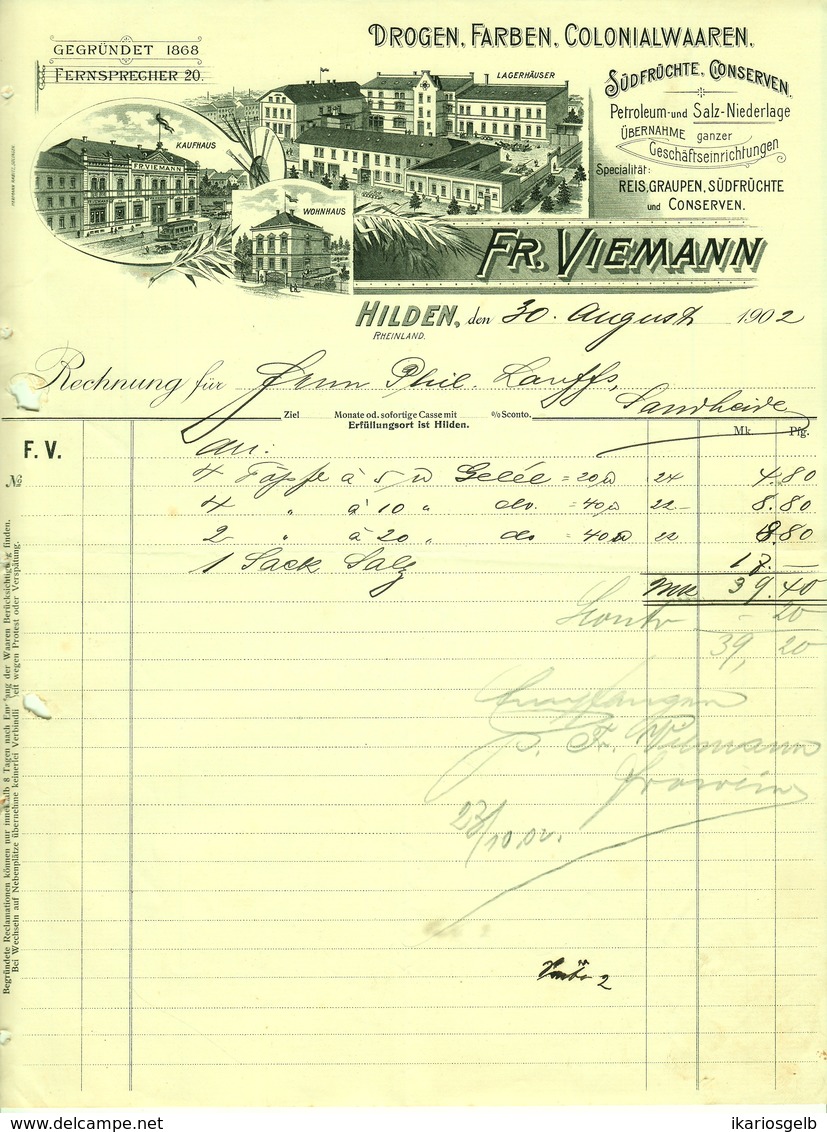 GEGRÜNDET 1868
FERNSPRECHER 20.
DROGEN, FARBEN, COLONIALWAAREN,
SÜDFRÜCHTE, CONSERVEN.
Petroleum- und Salz-Niederlage
ÜBERNAHME ganzer
Geschäftseinrichtungen
Specialität:
REIS, GRAUPEN, SÜDFRÜCHTE
und CONSERVEN.
LAGERHÄUSER
KAUFHAUS
FR. VIEMANN
WOHNHAUS
FR. VIEMANN
HILDEN, den 30. August 1902
RHEINLAND.
Rechnung für Herrn Phil. Lauffs,
Sandheide
Ziel Monate od. sofortige Casse mit % Sconto.
Erfüllungsort ist Hilden.
Mk. Pfg.
F. V.
№
an:
4 Töpfe à 5 ℔ Gelée = 20 ℔ 24 4.80
4 " à 10 " do. = 40 ℔ 22 - 8.80
2 " à 20 " do = 40 ℔ 22 8.80
1 Sack Salz 17. —
Mk 39.40
Sconto - 20
39, 20
Empfangen
p. Fr. Viemann
27/10.02.
2
Begründete Reclamationen können nur innerhalb 8 Tagen nach Empfang der Waaren Berücksichtigung finden.
Bei Wechseln auf Nebenplätze übernehme keinerlei Verbindlichkeit wegen Protest oder Verspätung.
www.delcampe.net
ikariosgelb